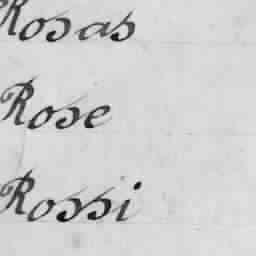 Rosas
Rose
Rossi